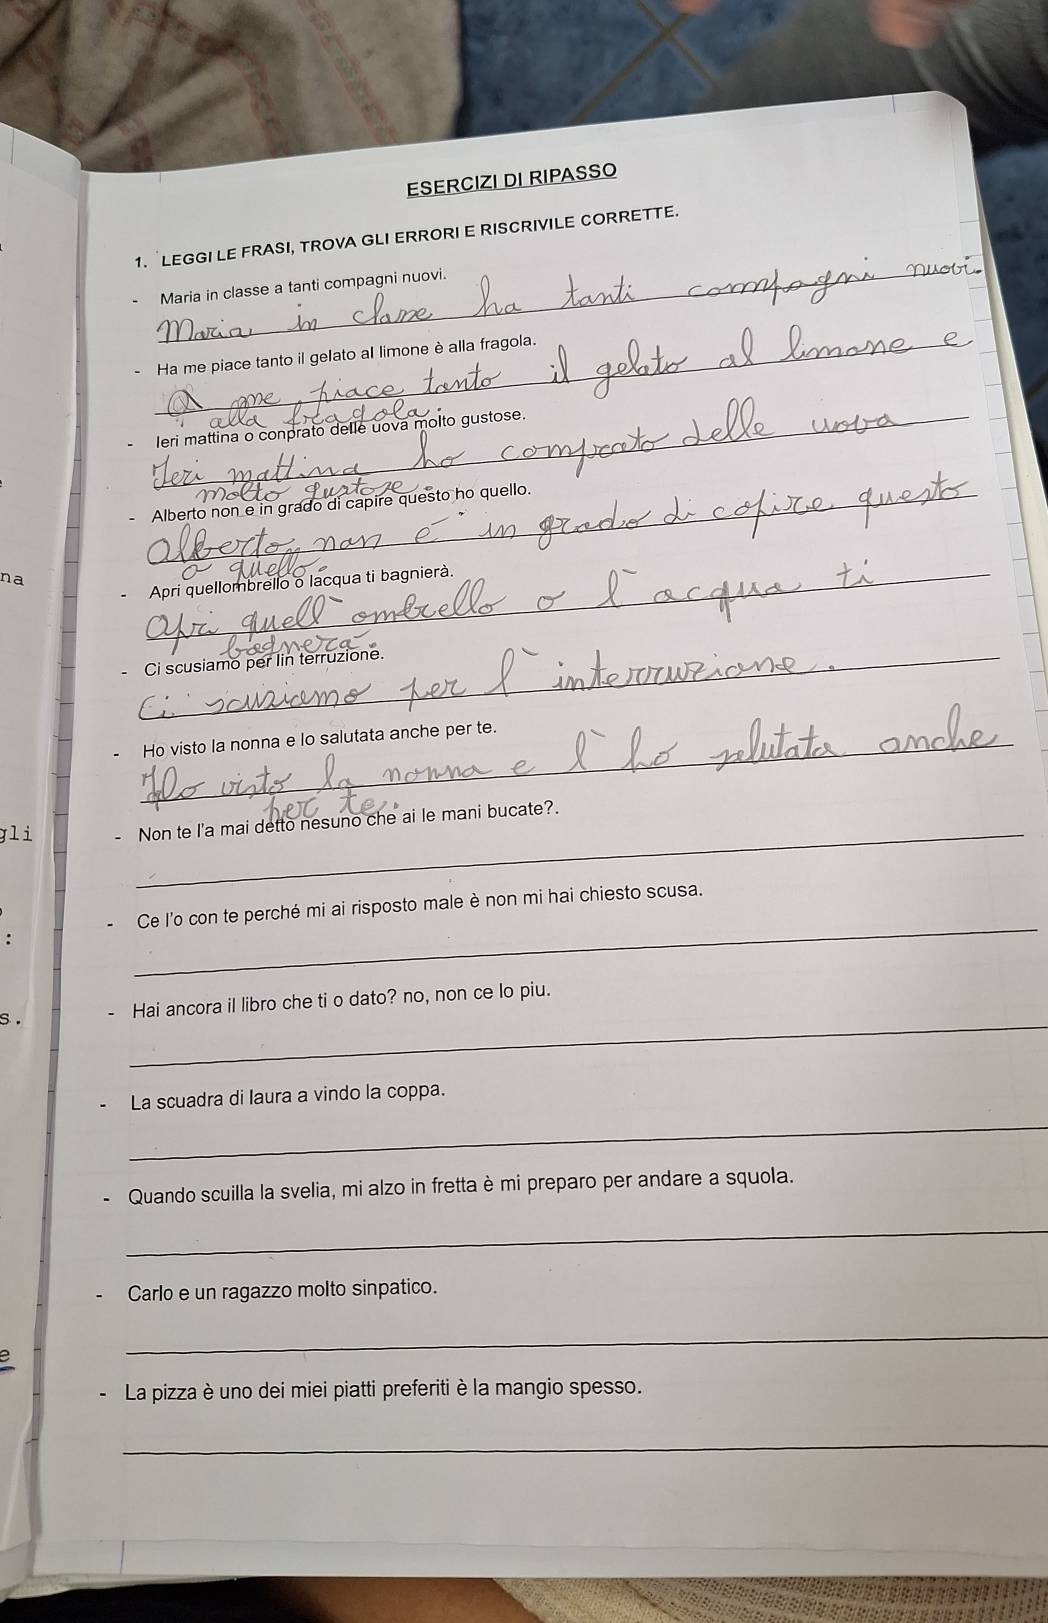 ESERCIZI DI RIPASSO
1. LEGGI LE FRASI, TROVA GLI ERRORI E RISCRIVILE CORRETTE.
- Maria in classe a tanti compagni nuovi.
Maria in classe ha tanti compagni nuovi.
- Ha me piace tanto il gelato al limone è alla fragola.
A me piace tanto il gelato al limone e
alla fragola.
- Ieri mattina o conprato delle uova molto gustose.
Ieri mattina ho comprato delle uova
molto gustose.
- Alberto non e in grado di capire questo ho quello.
Alberto non è in grado di capire questo
o quello.
na
- Apri quellombrello o lacqua ti bagnierà.
Apri quell'ombrello o l'acqua ti
bagnerà.
- Ci scusiamo per lin terruzione.
Ci scusiamo per l'interruzione.
- Ho visto la nonna e lo salutata anche per te.
Ho visto la nonna e l'ho salutata anche
per te.
gli
- Non te l'a mai detto nesuno che ai le mani bucate?.
- Ce l'o con te perché mi ai risposto male è non mi hai chiesto scusa.
:
- Hai ancora il libro che ti o dato? no, non ce lo piu.
s.
- La scuadra di laura a vindo la coppa.
- Quando scuilla la svelia, mi alzo in fretta è mi preparo per andare a squola.
- Carlo e un ragazzo molto sinpatico.
e
- La pizza è uno dei miei piatti preferiti è la mangio spesso.